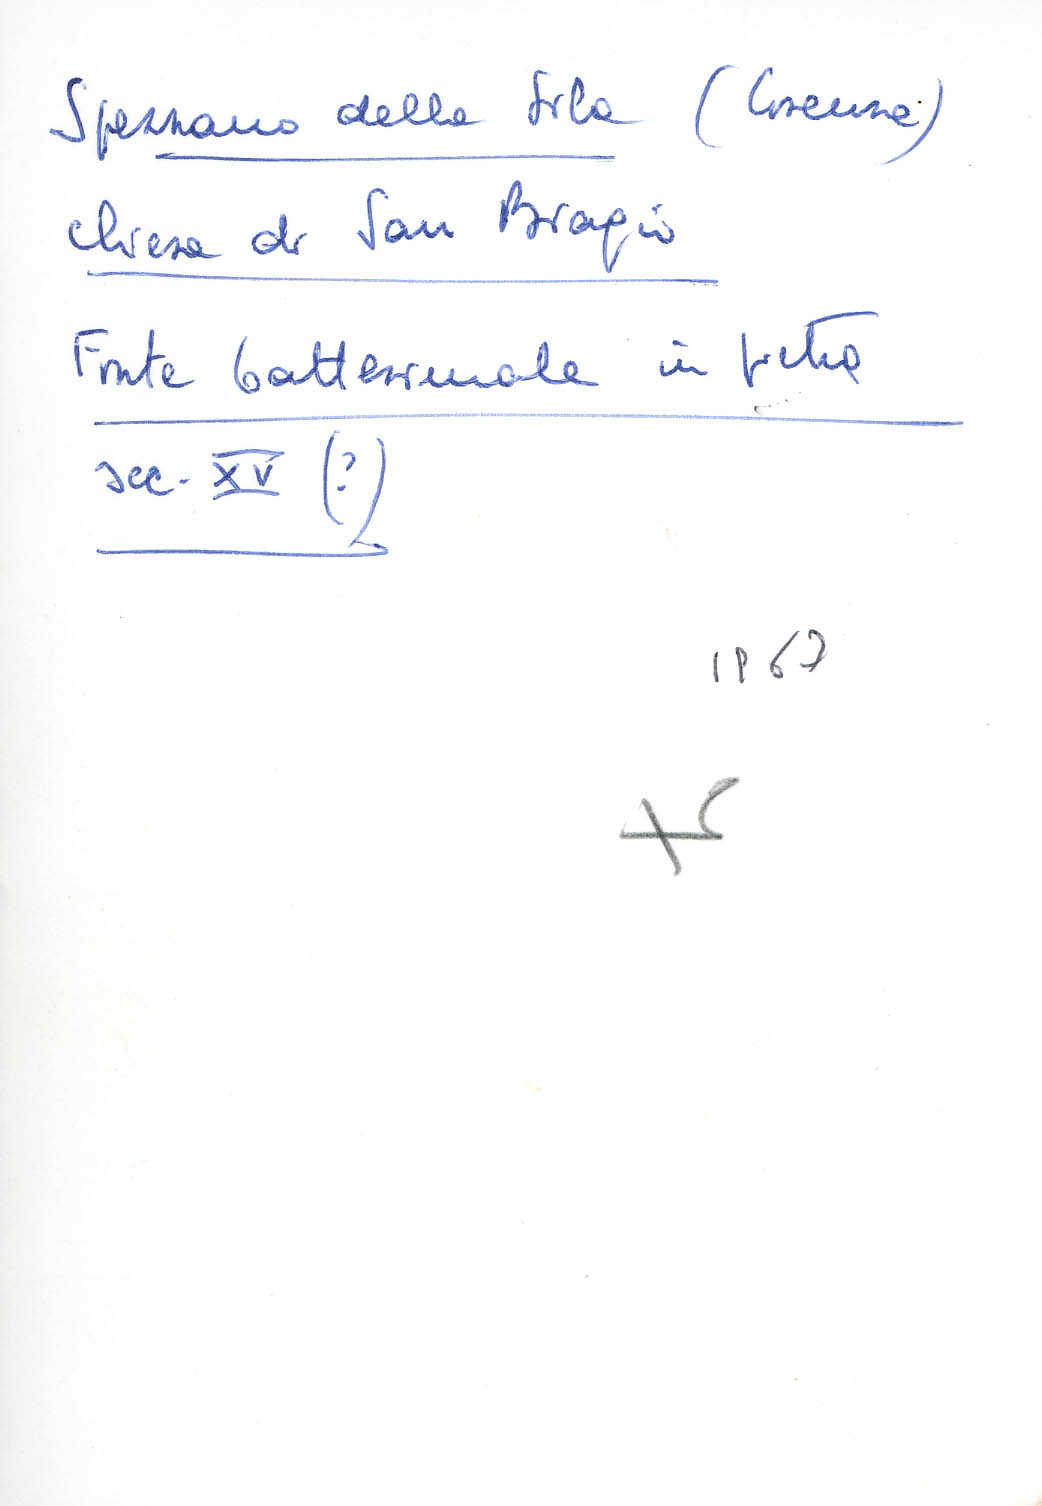 Spezzano della Sila (Cosenza)
Chiesa di San Biagio
Fonte battesimale in pietra
sec. XV (?)
1967